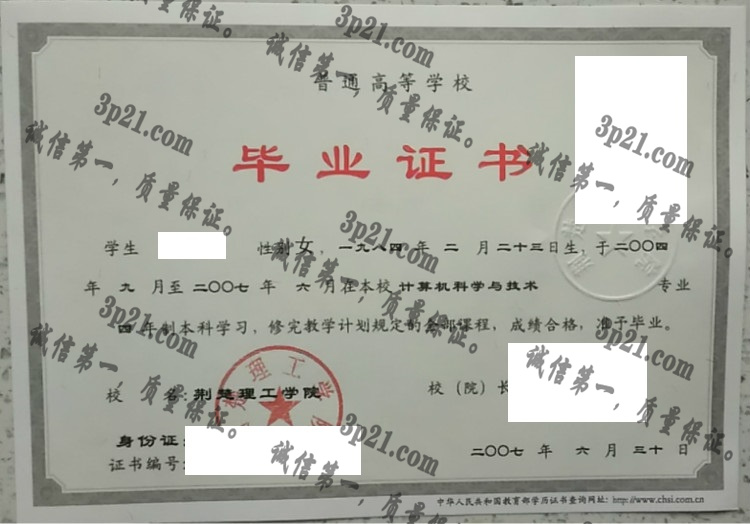 普通高等学校
毕业证书
学生 性别女，一九八四年 二 月二十三日生，于二〇〇四
年 九 月至二〇〇七年 六月在本校 计算机科学与技术 专业
四年制本科学习，修完教学计划规定的全部课程，成绩合格，准予毕业。
校 名：荆楚理工学院 校（院）长
理工学
身份证：
证书编号： 二〇〇七 年 六 月 三十 日
中华人民共和国教育部学历证书查询网址：http://www.chsi.com.cn
3p21.com
诚信第一，质量保证。
3p21.com
诚信第一，质量保证。
3p21.com
诚信第一，质量保证。
3p21.com
诚信第一，质量保证。
3p21.com
诚信第一，质量保证。
3p21.com
诚信第一，质量保证。
3p21.com
诚信第一，质量保证。
质量保证。